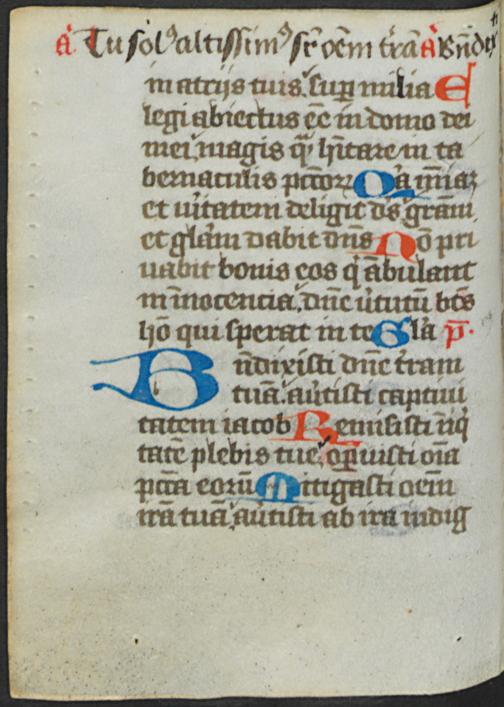 a Tu sol᷒ altissim᷒ sr̄ oēm tr̄am a Bn̄dix
in atrijs tuis. sup̄ milia E
legi abiectus eē in domo dei
mei, magis q̄ hītare in ta
bernaculis pctōrꝫ Qa mīaꝫ
et uītatem deligit ds̄ grām
et glām dabit dn̄s Nō pri
uabit bonis eos q̄ ābulant
in innocencia, dn̄e ūtutū btūs
hō qui sperat in te Glā p̄.
Bn̄dixisti dn̄e tr̄am
tuā. aūtisti captiui
tatem iacob Remisisti īiq̇
tatē plebis tue, opuisti oīa
pctā eorū Mitigasti oēm
irā tuā, aūtisti ab ira indig